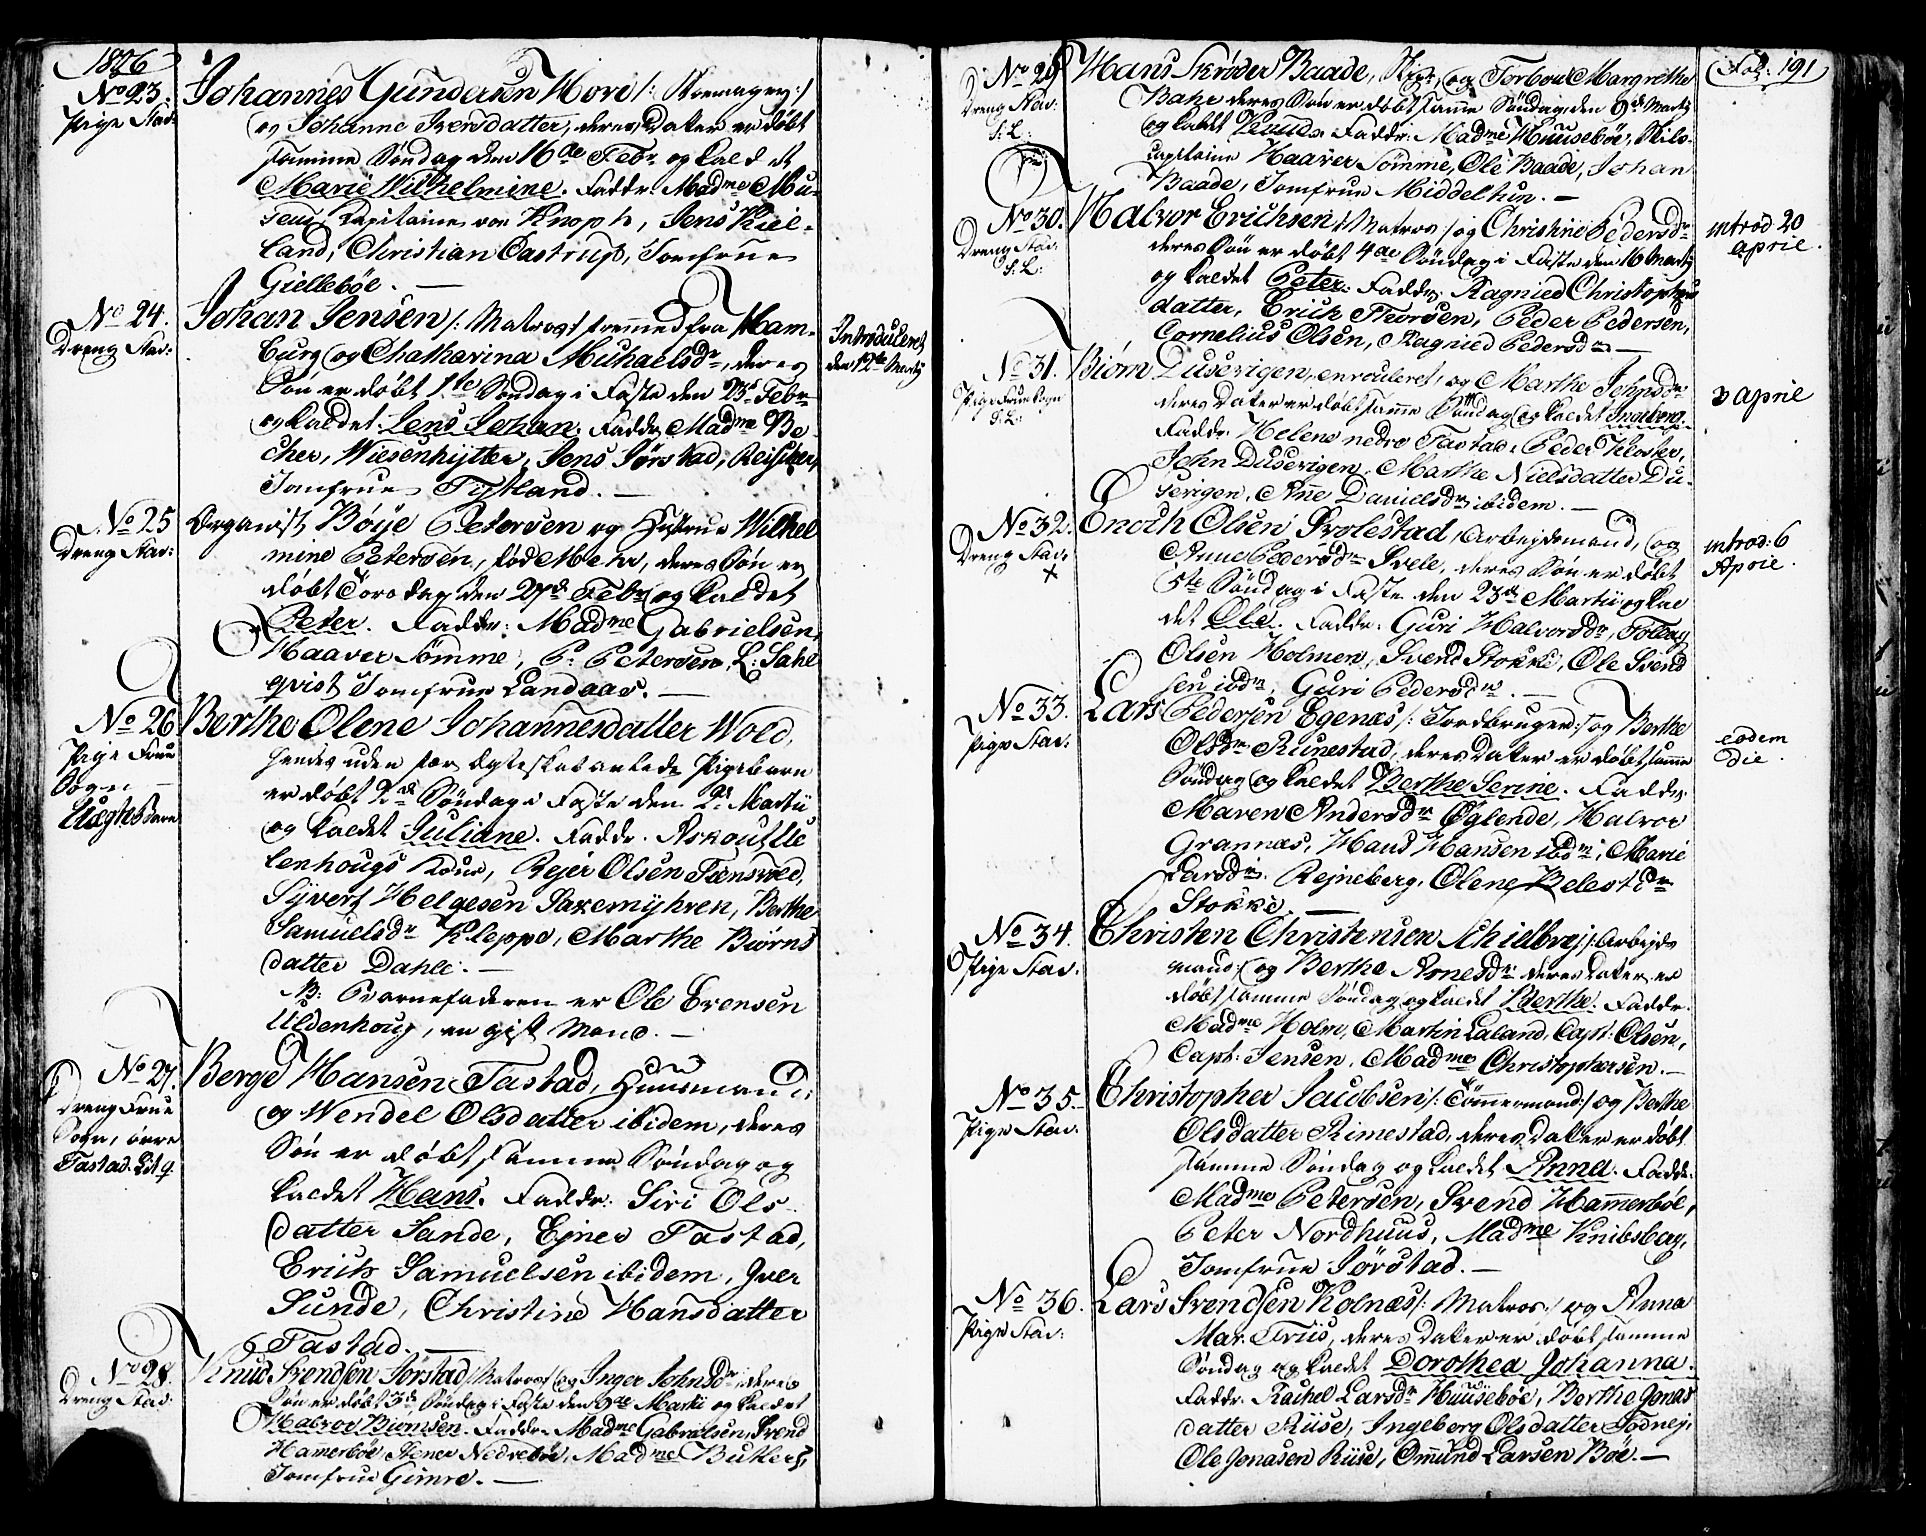 1806
No 23.
Pige Stav:
Johannes Gundersen Hove /: Skomager :/
og Johanne Iversdatter, deres Datter er døbt
samme Søndag den 16de Febr. og kaldet
Marie Wilhelmine. Faddr: Madme Mu-
Capitaine von Knoph, Jens Kiel-
land, Christian Castrup, Jomfrue
Giellebøe. —
No 24.
Dreng Stav:
Johan Jensen /: Matros fremmed fra Ham-
burg og Chatharina Michaelsdr, deres
Søn er døbt 1ste Søndag i Faste den 23d Febr
og kaldet Jens Johan. Faddr Madme Be-
cher, Wiesenhytter, Jens Jørstad,
Jomfrue Tytland. —
Introduceret
den 12te Martij
No 25
Dreng Stav:
Organist Bøye Petersen og Hustrue Wilhel
mine Petersen, fød Mehr, deres Søn er
døbt Torsdag den 27d Febr og kaldet
Peter. Faddr: Madme Gabrielsen,
Haaver Sømme, P. Petersen, L: Sahl
qvist Jomfrue Landaas. —
No 26
Pige Frue
Sogn —
Uægte Barn
Berthe Olene Johannesdatter Wold,
hendes uden for Ægteskab avlede Pigebarn
er døbt 2d Søndag i Faste den 2d Martii
og kaldet Juliane. Faddr. Ulle
lenhougs Kone, Rejer Olsen
Syvert Helgesen Saxemyhren, Berthe
Samuelsdr Kleppe, Marthe Biørns
datter Dahle. —
NB: Barnefaderen er Ole Evensen
Uldenhoug, en gift Mand. —
No 27.
Dreng Frue
Sogn, øvre
Tastad Lit q.
Berge Hansen Tastad, Huusmand
og Wendel Olsdatter ibidem, deres
Søn er døbt samme Søndag og
kaldet Hans. Faddr: Siri Ols-
datter Sande, Ejner Tastad,
Erich Samuelsen ibidem, Iver
Sunde, Christine Hansdatter
Tastad. —
No 28.
Dreng Stav:
Knud Svendsen Jørstad /: Matros og Inger Johnsdr, deres
Søn er døbt 3d Søndag i Faste den 9de Martii og kaldet
Halvor Biørnsen. Faddr. Madme Gabrielsen, Svend
Hamerbøe, Stener Nedrebøe, Madme Butler,
Jomfrue Gimre. —
No 29
Dreng Stav:
S: L:
Hans Skrøder Baade, og Torbour Margrethe
Bahr deres Søn er døbt samme Søndag den 9de Martij
og kaldet Knud. Faddr: Madme Huusebøe, Skibs-
capitaine Haaver Sømme, Ole Baade, Johan
Baade, Jomfrue Middelthun. —
Fol: 191
No 30.
Dreng Stav:
S: L:
Halvor Erichsen /: Matros :/ og Christine Pedersdr
deres Søn er døbt 4de Søndag i Faste den 16 Martij
og kaldet Peter. Faddr. Ragnied Christopher
datter, Erich Thorsen, Peder Pedersen,
Cornelius Olsen, Ragnied Pedersdr —
introd 20
Aprile.
No 31.
Pige Frue Sogn
S: L:
Biørn Dusevigen, enrouleret, og Marthe Johnsdr
deres Datter er døbt samme Søndag og kaldet Ingeborg.
Faddr. Helene nedre Tastad, Peder Kloster,
John Dusevigen, Marthe Nielsdatter Du-
sevigen, Ane Danielsdr ibidem. —
3 April
No 32.
Dreng Stav:
x
Enoch Olsen Svolestad, Arbejdsmand, og
Anne Pedersdr Svele, deres Søn er døbt
5te Søndag i Faste den 23de Martii og kal
det Ole. Faddr. Guri Halvorsdr, Tollag
Olsen Holmen, Svend Stokke, Ole Svend
sen ibdm, Guri Pedersdr. —
introd: 6
Aprile.
No 33.
Pige Stav:
Lars Pedersen Egenæs /: Jordbruger :/ og Berthe
Olsdr Runestad, deres Datter er døbt samme
Søndag og kaldet Berthe Serine. Faddr.
Maren Andersdr Øglende, Halvor
Grannæs, Hans Hansen ibdm, Marie
Larsdr. Rejneberg, Olene
Stokke. —
eodem
die.
No 34.
Pige Stav:
Christen Christensen Schielbrej /: Arbejds
mand :/ og Berthe Arnesdr deres Datter er
døbt samme Søndag og kaldet Berthe. Faddr.
Madme Holm, Martin Laland, Capt: Olsen,
Capt: Jensen, Madme Christophersen. —
No 35.
Pige Stav:
Christopher Jacobsen /: Tømmermand :/ og Berthe
Olsdatter Rimestad, deres Datter er døbt
samme Søndag og kaldet Anna. Faddr:
Madme Petersen, Svend Hamerbøe,
Peter Nordhuus, Madme Knibsbag,
Jomfrue Jørstad. —
No 36.
Pige Stav:
Lars Svendsen Kolnæs /: Matros :/ og Anna
Mar: Friis, deres Datter er døbt samme
Søndag og kaldet Dorothea Johanna.
Faddr. Rachel Larsdr Huusebøe, Berthe Jonas
datter Riise, Ingeborg Olsdatter Todnej,
Ole Jonasen Riise, Omund Larsen Bøe. —